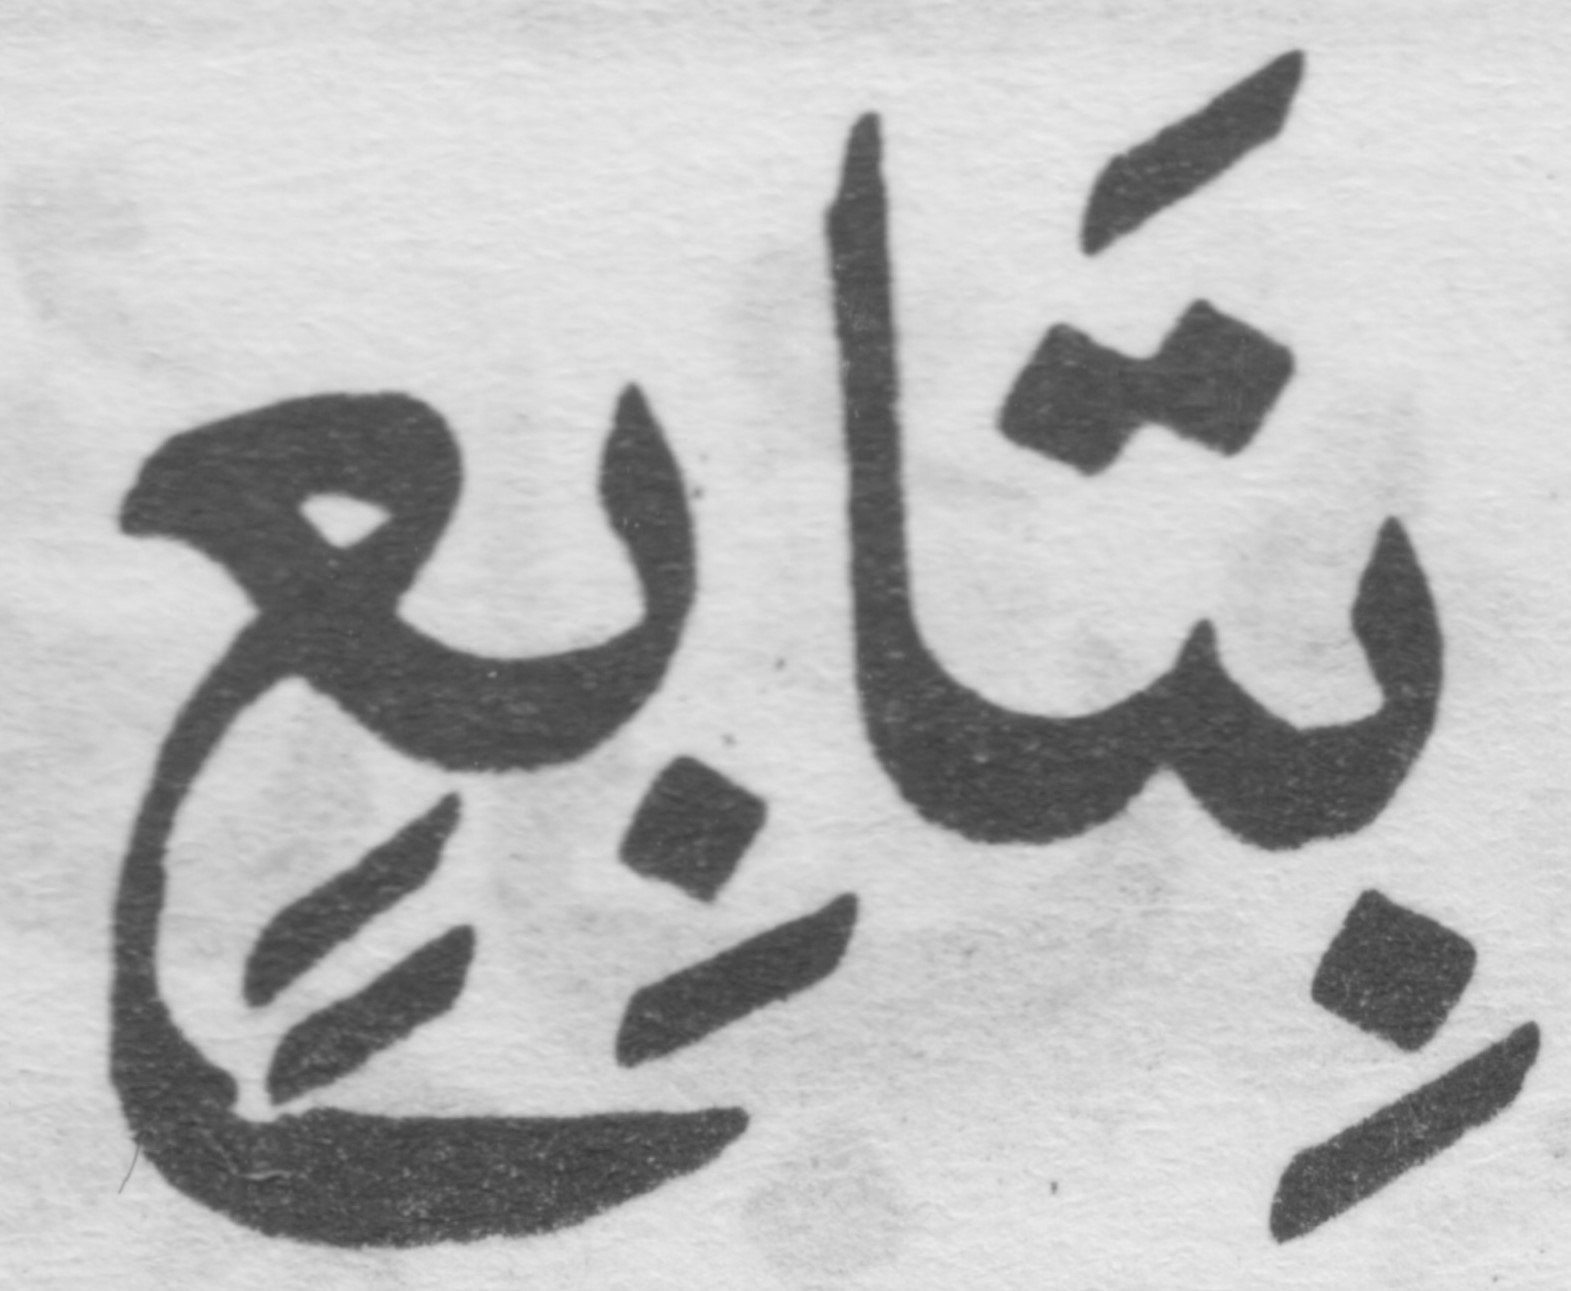 بِتَابِعٍ